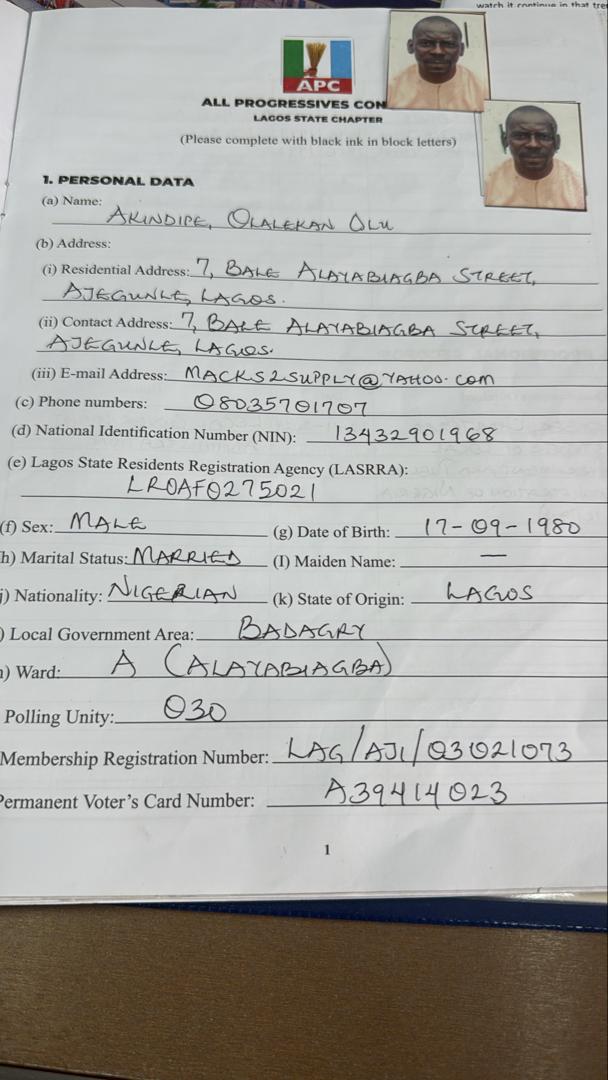 watch it continue in that tre
APC
ALL PROGRESSIVES CON
LAGOS STATE CHAPTER
(Please complete with black ink in block letters)
1. PERSONAL DATA
(a) Name: AKINDIPE, OLALEKAN OLU
(b) Address:
(i) Residential Address: 7, BALE ALAYABIAGBA STREET,
AJEGUNLE, LAGOS.
(ii) Contact Address: 7, BALE ALAYABIAGBA STREET,
AJEGUNLE, LAGOS.
(iii) E-mail Address: MACKS2SUPPLY@YAHOO.COM
(c) Phone numbers: 08035701707
(d) National Identification Number (NIN): 13432901968
(e) Lagos State Residents Registration Agency (LASRRA):
LROAF0275021
(f) Sex: MALE (g) Date of Birth: 17-09-1980
h) Marital Status: MARRIED (I) Maiden Name: —
j) Nationality: NIGERIAN (k) State of Origin: LAGOS
) Local Government Area: BADAGRY
) Ward: A (ALAYABIAGBA)
Polling Unity: 030
Membership Registration Number: LAG/AJI/03021073
Permanent Voter's Card Number: A39414023
1